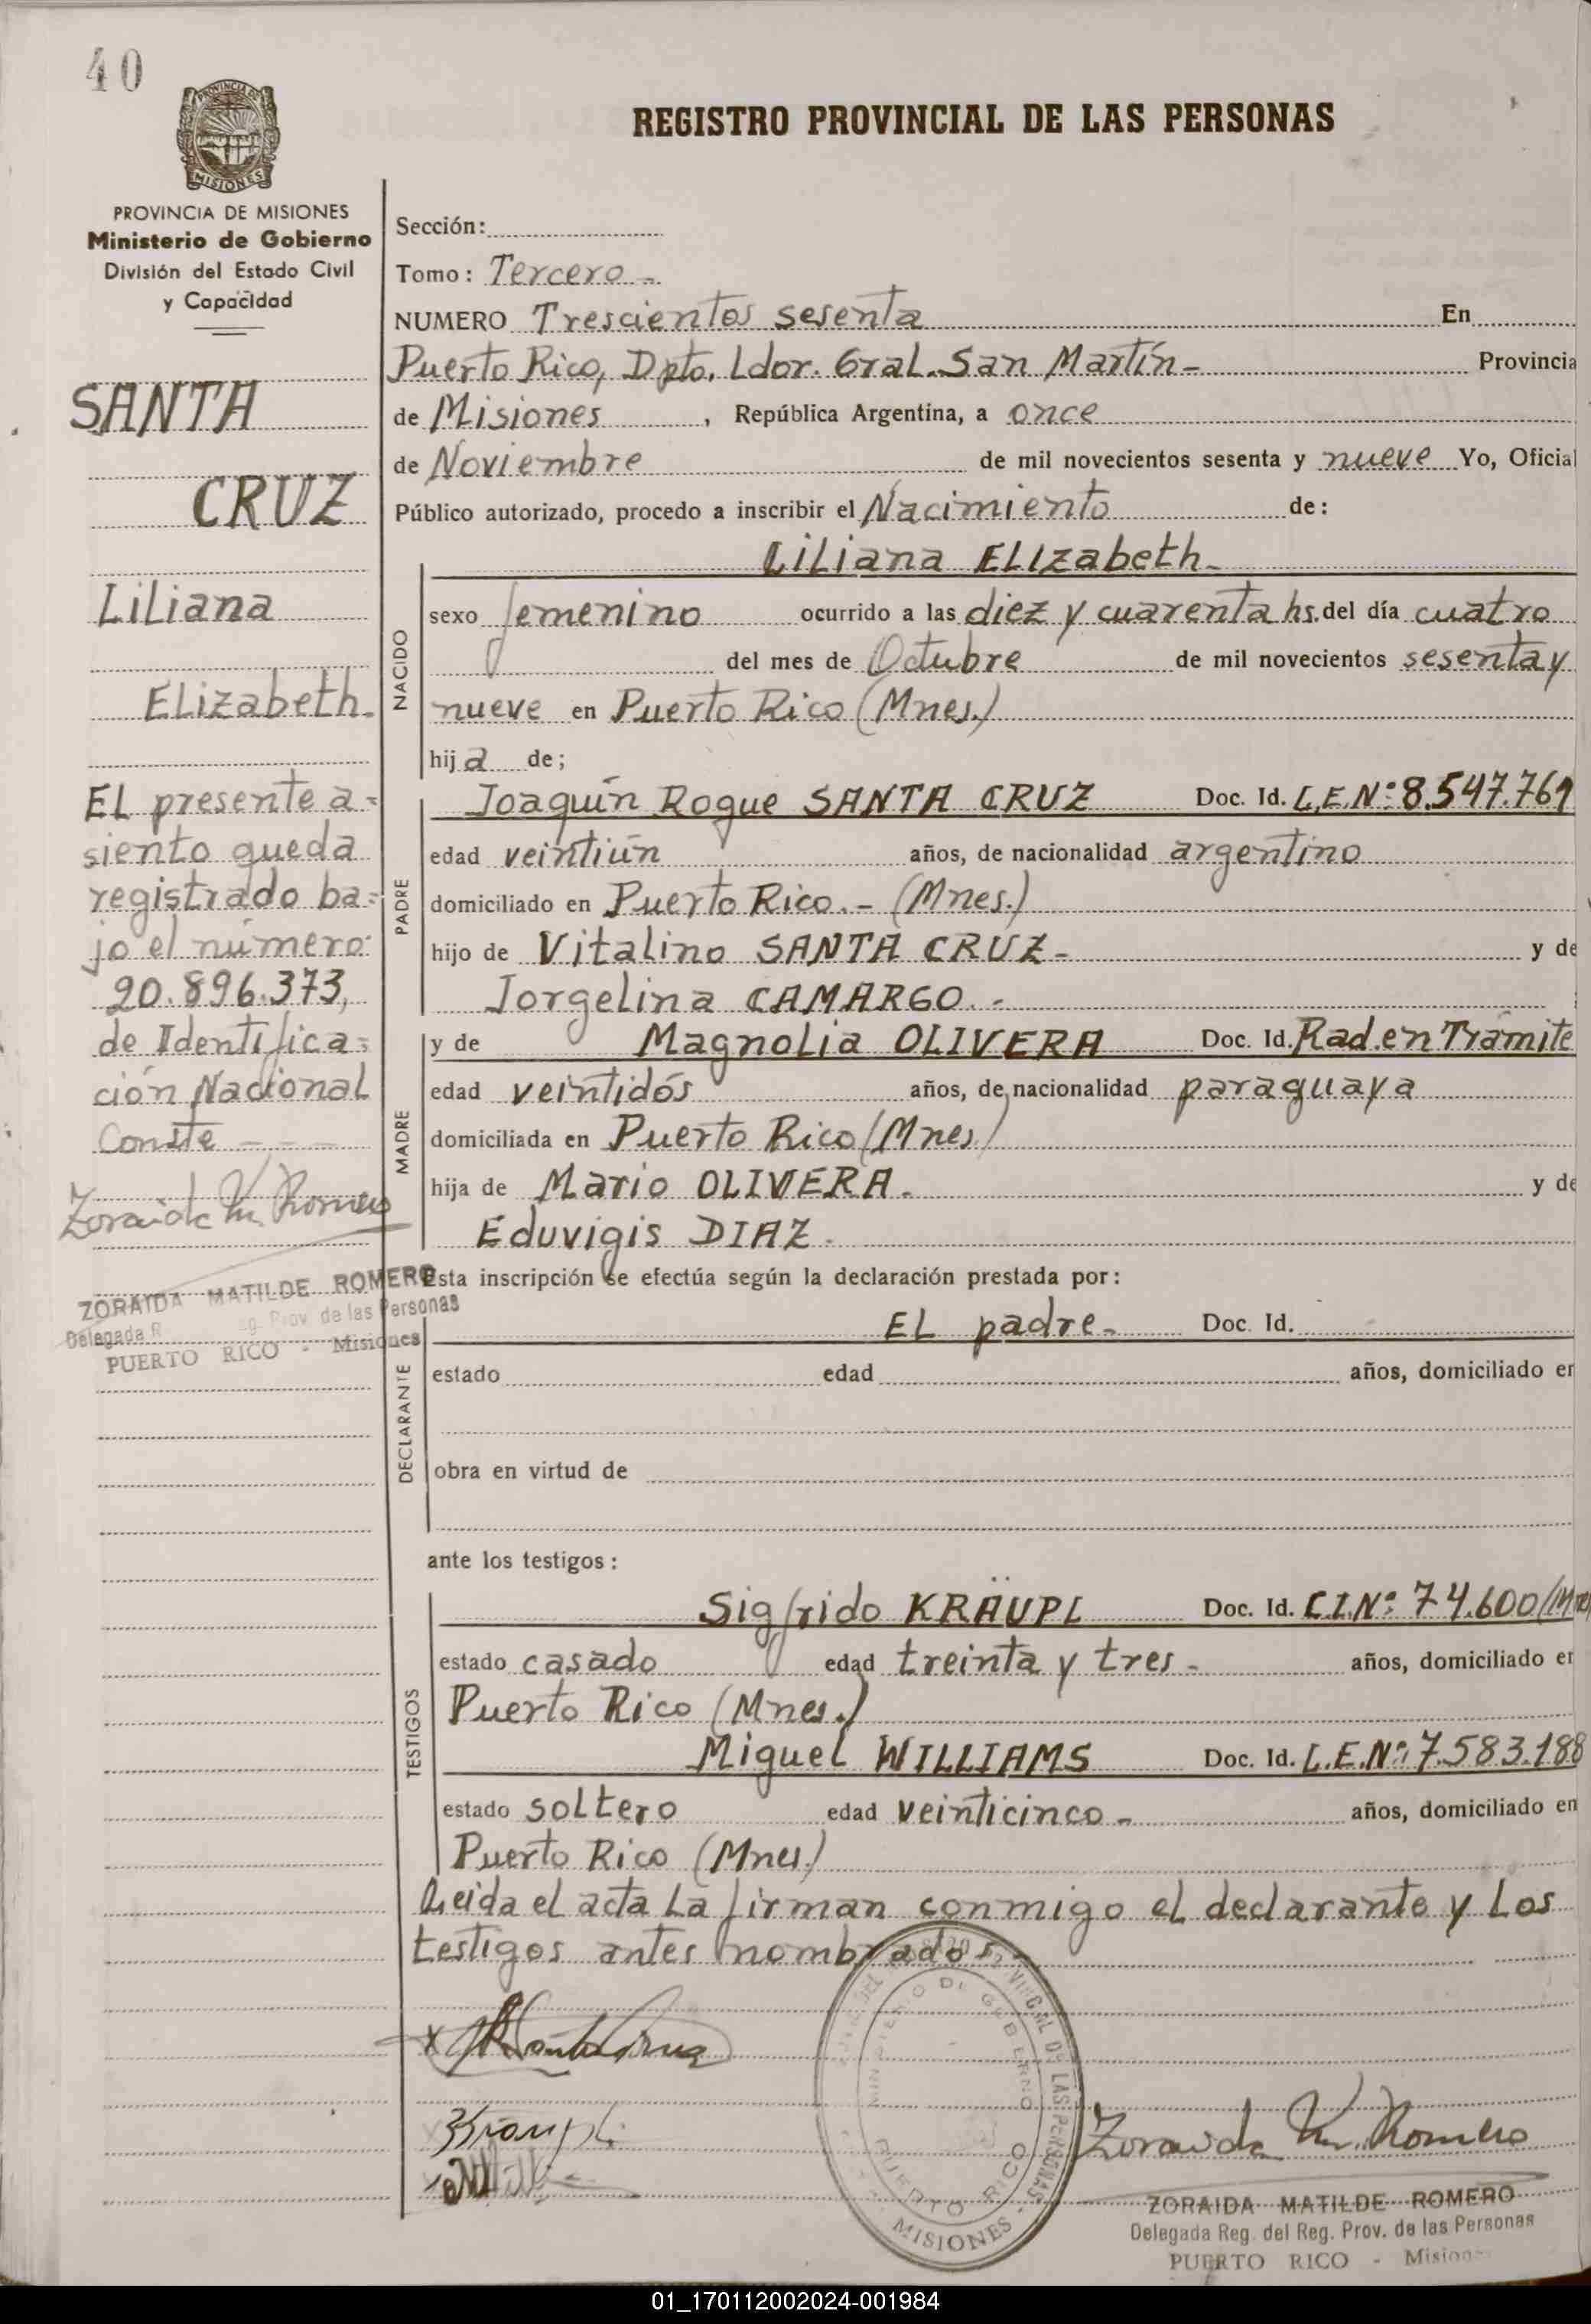 40
PROVINCIA DE
MISIONES
REGISTRO PROVINCIAL DE LAS PERSONAS
PROVINCIA DE MISIONES
Ministerio de Gobierno
División del Estado Civil
y Capacidad
SANTA
CRUZ
Liliana
Elizabeth.
El presente a=
siento queda
registrado ba=
jo el número:
20.896.373,
de Identifica=
ción Nacional
Conste - - -
Zoraida M. Romero
ZORAIDA MATILDE ROMERO
Delegada R. g. Prov. de las Personas
PUERTO RICO - Misiones
Sección:
Tomo: Tercero -
NUMERO Trescientos sesenta En
Puerto Rico, Dpto. Ldor. Gral. San Martín - Provincia
de Misiones, República Argentina, a once
de Noviembre de mil novecientos sesenta y nueve Yo, Oficial
Público autorizado, procedo a inscribir el Nacimiento de:
Liliana Elizabeth -
NACIDO
sexo femenino ocurrido a las diez y cuarenta hs. del día cuatro
del mes de Octubre de mil novecientos sesenta y
nueve en Puerto Rico (Mnes.)
hija de;
PADRE
Joaquín Roque SANTA CRUZ Doc. Id. L.E.Nº: 8.547.769
edad veintiún años, de nacionalidad argentino
domiciliado en Puerto Rico.- (Mnes.)
hijo de Vitalino SANTA CRUZ - y de
Jorgelina CAMARGO. -
MADRE
y de Magnolia OLIVERA Doc. Id. Rad. en Trámite
edad veintidós años, de nacionalidad paraguaya
domiciliada en Puerto Rico (Mnes.)
hija de Mario OLIVERA. y de
Eduvigis DIAZ.
Esta inscripción se efectúa según la declaración prestada por:
DECLARANTE
El padre - Doc. Id.
estado edad años, domiciliado en
obra en virtud de
ante los testigos:
TESTIGOS
Sigfrido KRÄUPL Doc. Id. C.I.Nº: 74.600/Mnes
estado casado edad treinta y tres - años, domiciliado en
Puerto Rico (Mnes.)
Miguel WILLIAMS Doc. Id. L.E.Nº: 7.583.188
estado soltero edad veinticinco - años, domiciliado en
Puerto Rico (Mnes.)
Leida el acta la firman conmigo el declarante y los
testigos antes nombrados -
MINISTERIO DE GOBIERNO
PUERTO RICO
- MISIONES -
Zoraida M. Romero
ZORAIDA MATILDE ROMERO
Delegada Reg. del Reg. Prov. de las Personas
PUERTO RICO - Misiones
01_170112002024-001984